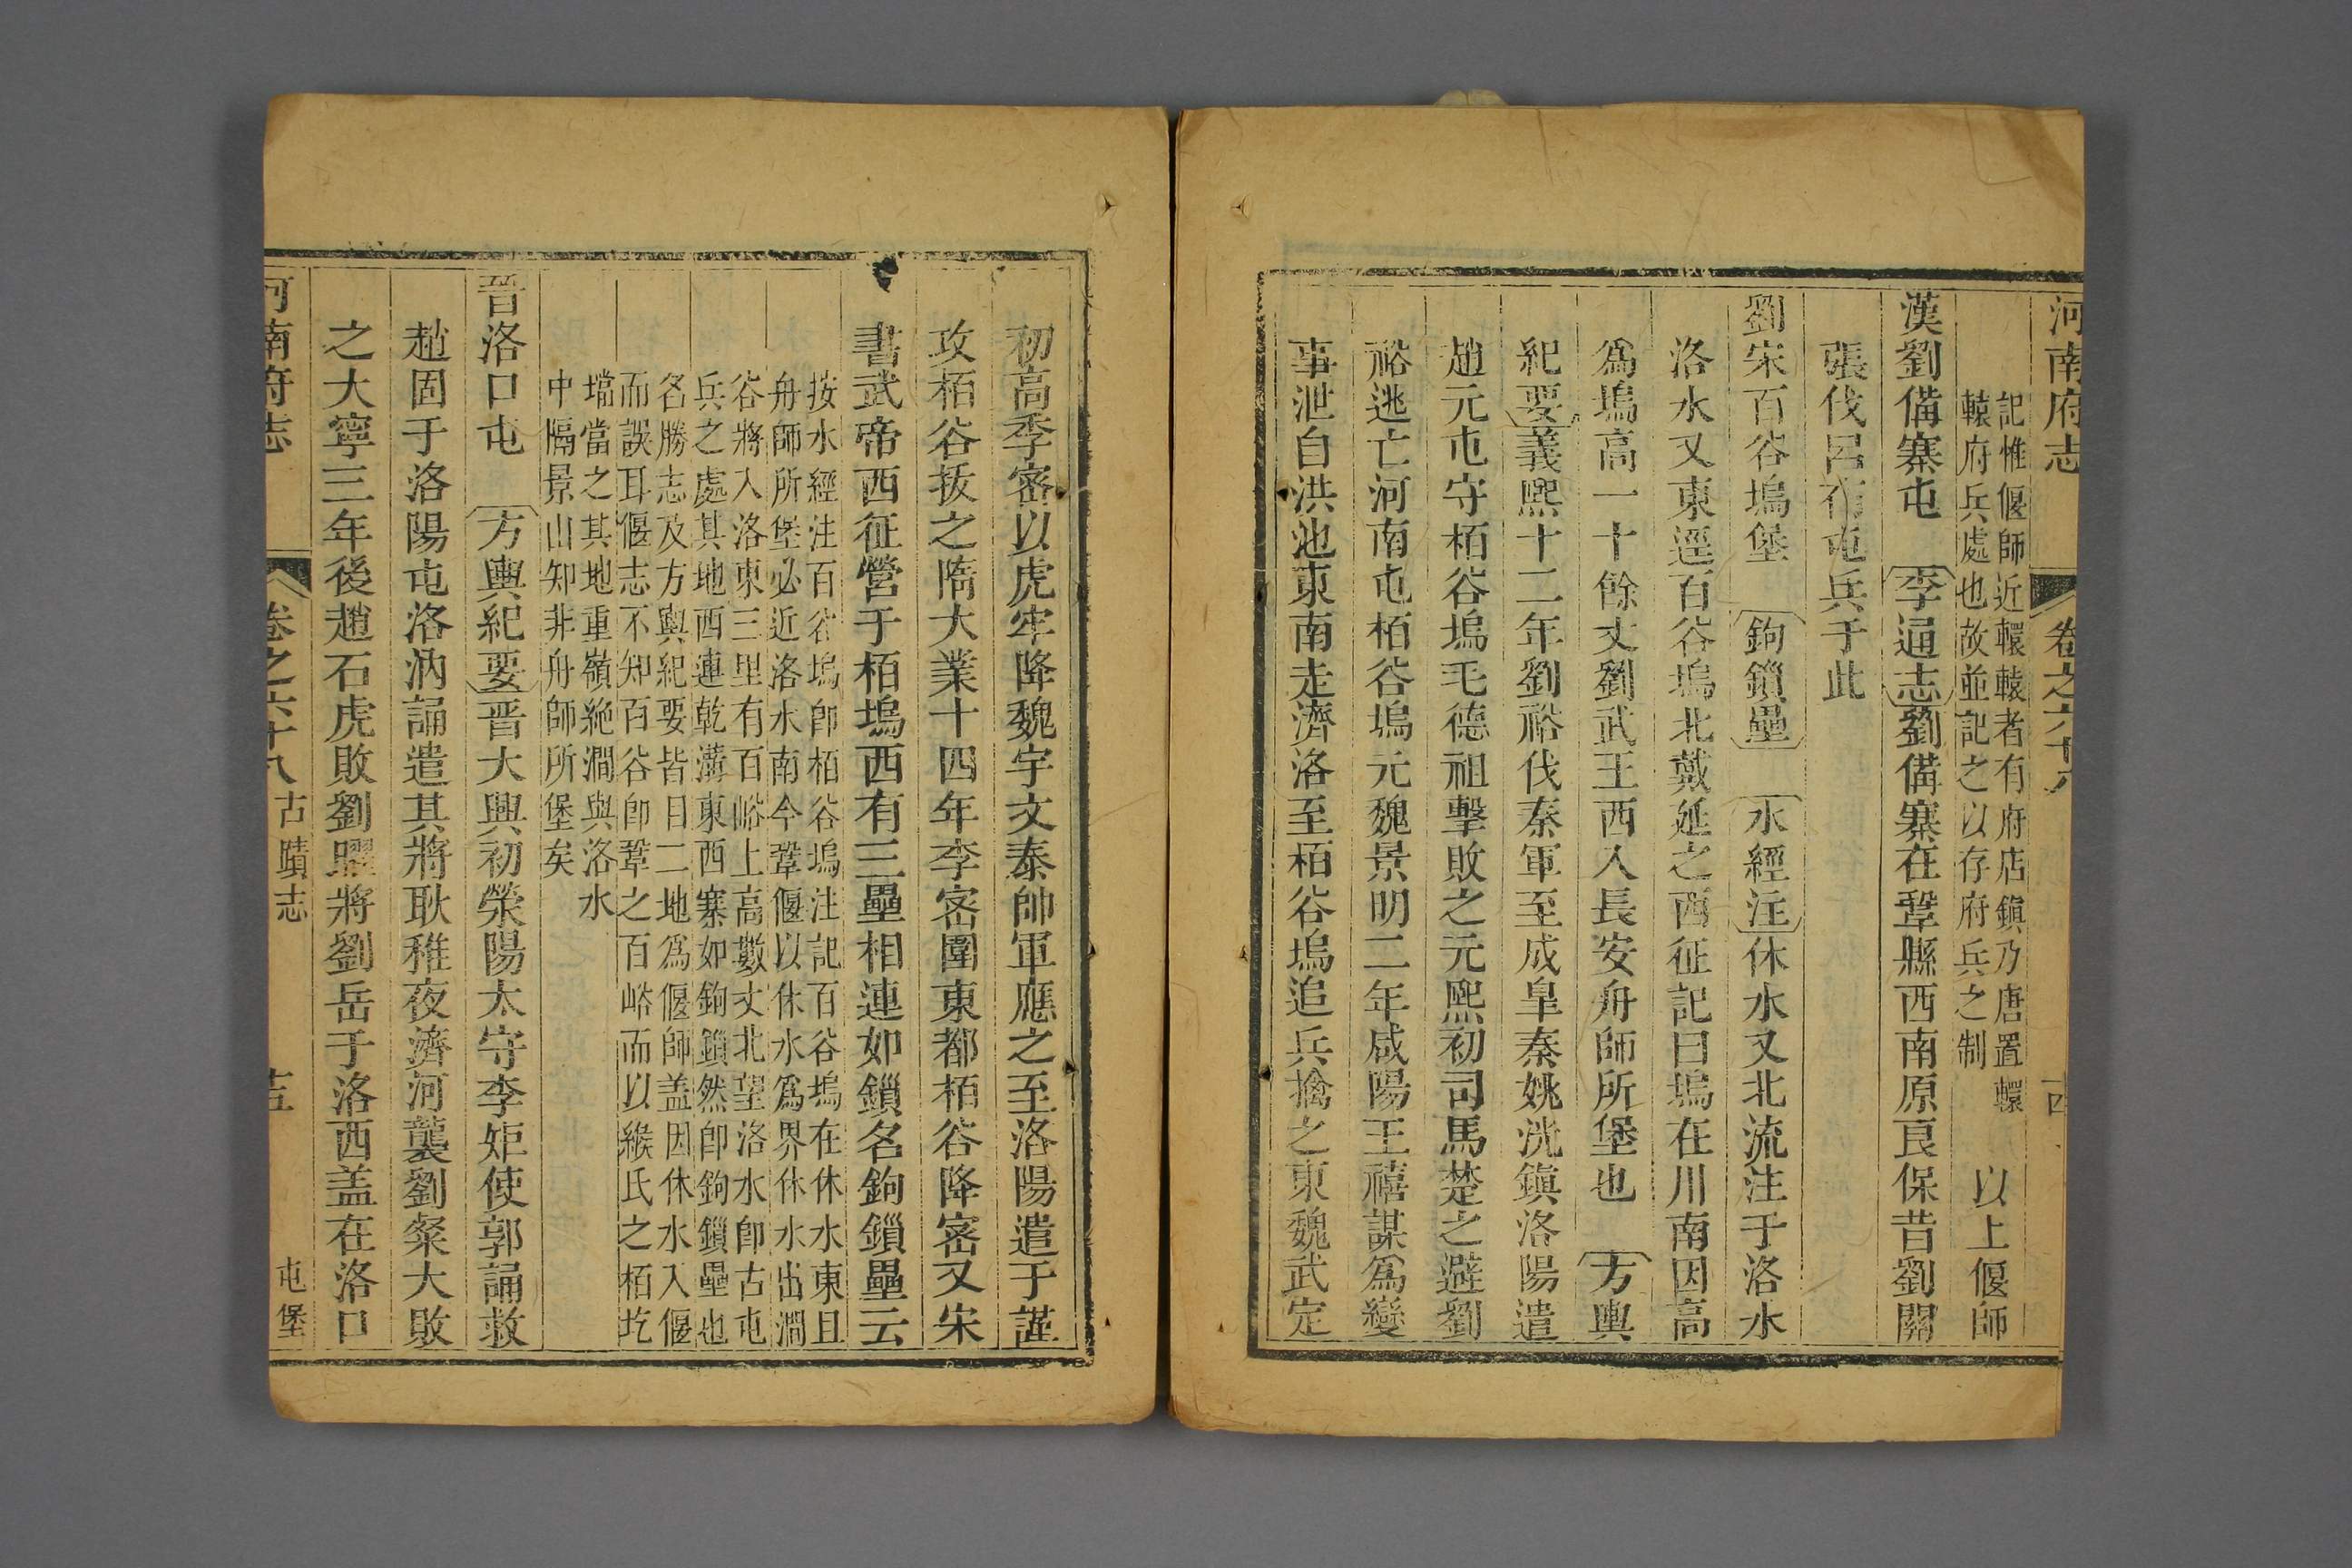 河南府志 卷之六十八 十四
記惟偃師近轘轅者有府店鎮乃唐置轘
轅府兵處也故並記之以存府兵之制
以上偃師
漢劉備寨屯 李通志劉備寨在鞏縣西南原良保昔劉關
張伐呂布屯兵于此
劉宋百谷塢堡 鉤鎖壘 水經注休水又北流注于洛水
洛水又東逕百谷塢北戴延之西征記曰塢在川南因高
爲塢高一十餘丈劉武王西入長安舟師所堡也 方輿
紀要義熙十二年劉裕伐秦軍至成皐秦姚洸鎭洛陽遣
趙元屯守栢谷塢毛德祖擊敗之元熙初司馬楚之避劉
裕逃亡河南屯栢谷塢元魏景明二年咸陽王禧謀爲變
事泄自洪池東南走濟洛至栢谷塢追兵擒之東魏武定
初高季密以虎牢降魏宇文泰帥軍應之至洛陽遣于謹
攻栢谷拔之隋大業十四年李密圍東都栢谷降密又宋
書武帝西征營于栢塢西有三壘相連如鎖名鉤鎖壘云
按水經注百谷塢卽栢谷塢注記百谷塢在休水東且
舟師所堡必近洛水南今鞏偃以休水爲界休水出澗
谷將入洛東三里有百峪上高數丈北望洛水卽古屯
兵之處其地西連乾溝東西寨如鉤鎖然卽鉤鎖壘也
名勝志及方輿紀要皆曰二地爲偃師盖因休水入偃
而誤耳偃志不知百谷卽鞏之百峪而以緱氏之栢圪
壋當之其地重嶺絶澗與洛水
中隔景山知非舟師所堡矣
晉洛口屯 方輿紀要晋大興初滎陽太守李矩使郭誦救
趙固于洛陽屯洛汭誦遣其將耿稚夜濟河襲劉粲大敗
之大寧三年後趙石虎敗劉曜將劉岳于洛西盖在洛口
河南府志 卷之六十八 古蹟志 屯堡